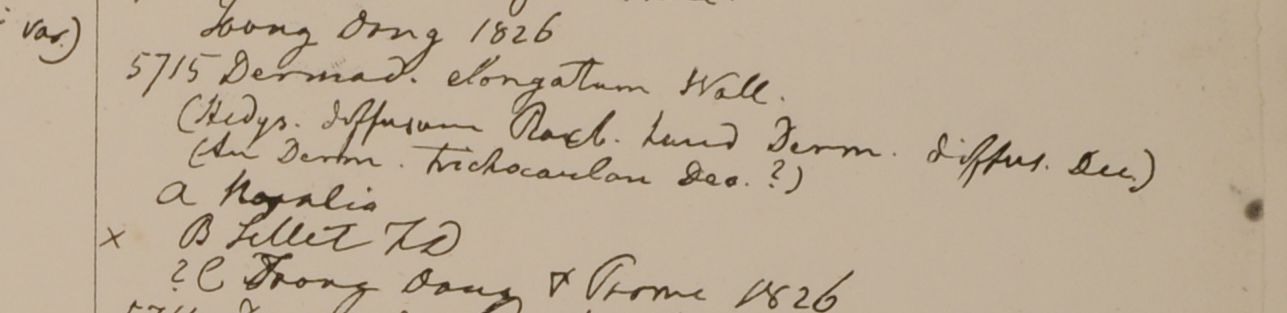 var.)
Toong Dong 1826
5715 Desmod. elongatum Wall.
(Hedys. diffusum Roxb. haud Desm. diffus. Dec.)
(An Desm. trichocaulon Dec. ?)
a Napalia
× B Sillet FD
? C Toong Dong & Prome 1826